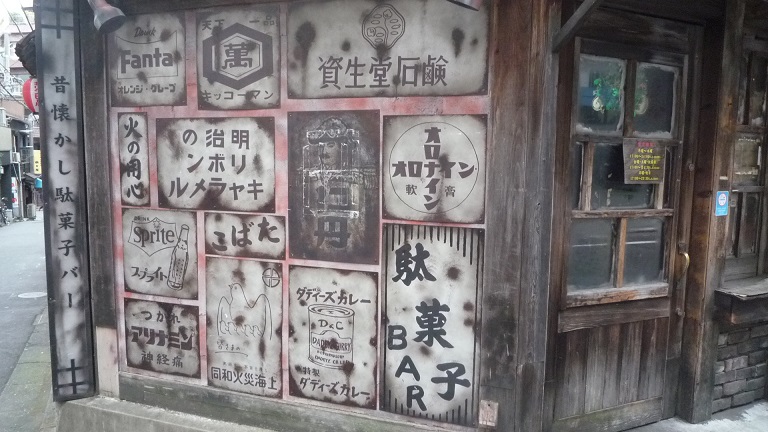 昔懐かし駄菓子バー
Drink
Fanta
オレンジ・グレープ
天下一品
萬
キッコーマン
資生堂石鹸
火の用心
明治の
ボリボン
キャラメル
仁丹
オロナイン
オロナイン
軟膏
DRINK
Sprite
スプライト
たばこ
つかれ
アリナミン
神経痛
同和火災海上
ダディーズカレー
D&C
特製
ダディーズカレー
駄菓子
BAR